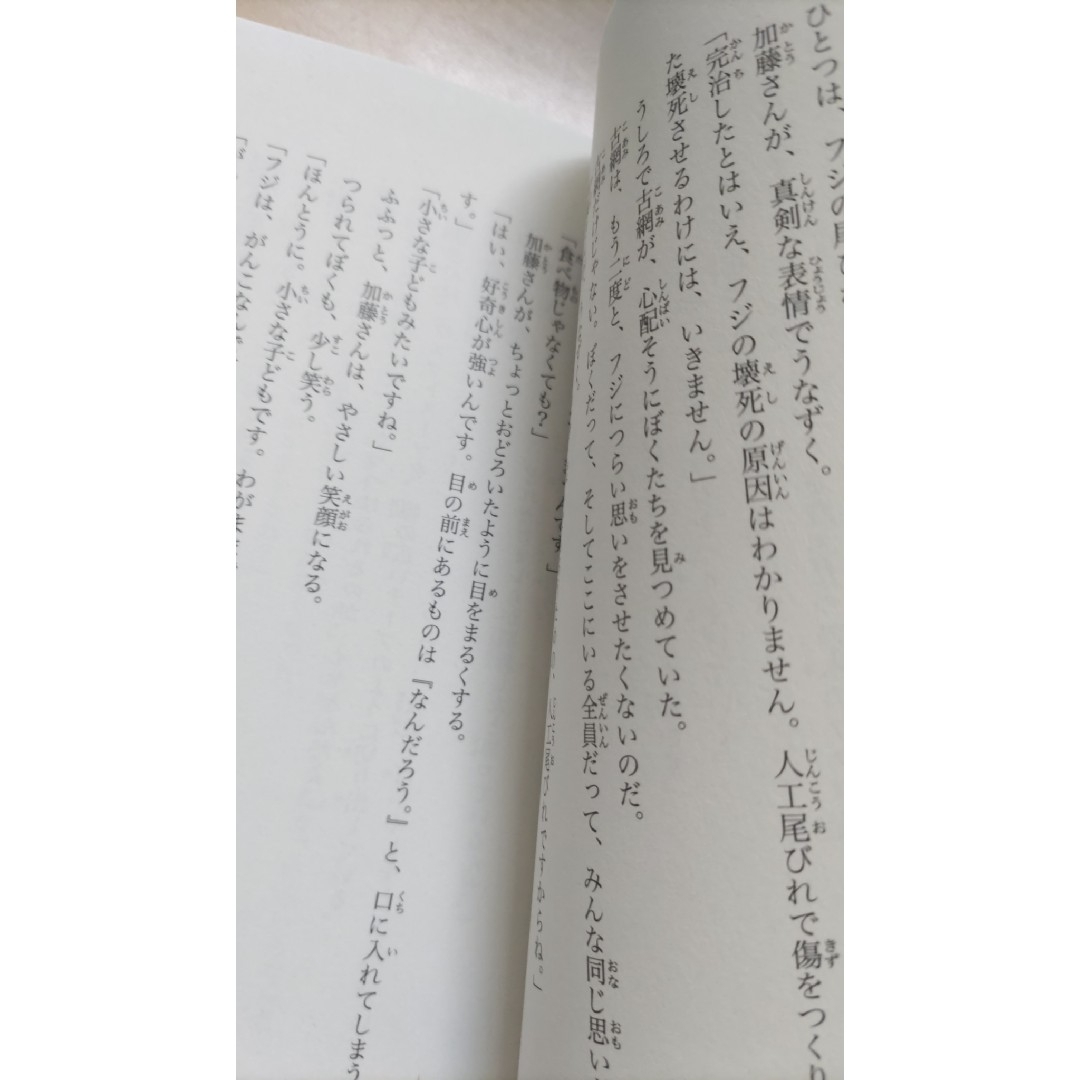 ひとつは、フジの
加藤さんが、真剣な表情でうなずく。
「完治したとはいえ、フジの壊死の原因はわかりません。人工尾びれで傷をつくり
た壊死させるわけには、いきません。」
うしろで古網が、心配そうにぼくたちを見つめていた。
古網は、もう二度と、フジにつらい思いをさせたくないのだ。
古網だけじゃない。ぼくだって、そしてここにいる全員だって、みんな同じ思い
びれですからね。」
「食べ物じゃなくても?」
加藤さんが、ちょっとおどろいたように目をまるくする。
「はい、好奇心が強いんです。目の前にあるものは『なんだろう。』と、口に入れてしまう
す。」
「小さな子どもみたいですね。」
ふふっと、加藤さんは、やさしい笑顔になる。
つられてぼくも、少し笑う。
「ほんとうに。小さな子どもです。わがま
「フジは、がんこなんで